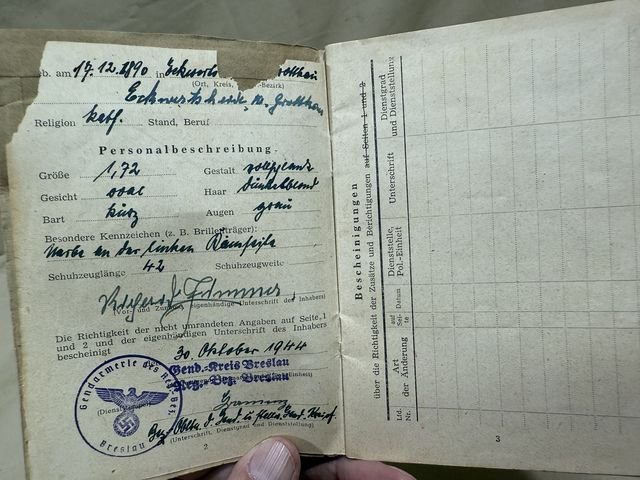 eb. am 17.12.1890 in
(Ort, Kreis, -Bezirk)
Religion kath. Stand, Beruf
Personalbeschreibung
Größe 1,72 Gestalt vollschlank
Gesicht oval Haar dunkelblond
Bart kurz Augen grau
Besondere Kennzeichen (z. B. Brillenträger):
Narbe an der linken
Schuhzeuglänge 42 Schuhzeugweite
(Vor- und Zuname, eigenhändige Unterschrift des Inhabers)
Die Richtigkeit der nicht umrandeten Angaben auf Seite 1
und 2 und der eigenhändigen Unterschrift des Inhabers
bescheinigt
30. Oktober 1944
Gend.-Kreis Breslau
Reg.-Bez. Breslau
Gendarmerie des Reg. Bez.
Breslau
(Unterschrift, Dienstgrad und Dienststellung)
2
Bescheinigungen
über die Richtigkeit der Zusätze und Berichtigungen auf Seiten 1 und 2
Lfd. Nr.
Art der Änderung
auf Seite
Datum
Dienststelle, Pol.-Einheit
Unterschrift
Dienstgrad und Dienststellung
3